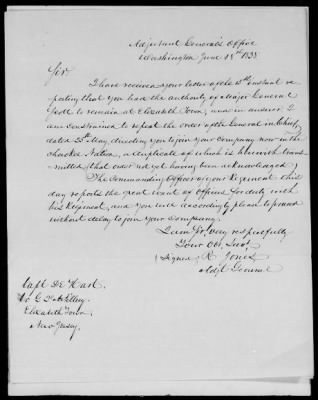 Adjutant General's Office
Washington June 18th 1838
Sir,
I have received your letter of the 15th instant re-
porting that you had the authority of Major General
Scott to remain at Elizabeth Town, and in answer I
am constrained to repeat the order of the General in Chief,
dated 23d May, directing you to join your Company now in the
Cherokee Nation, a duplicate of which is herewith trans-
mitted (that order not yet having been acknowledged.)
The Commanding Officer of your Regiment this
day reports the great want of Officers for duty with
his Regiment, and you will accordingly please to proceed
without delay to join your Company.
I am Sir, very respectfully
Your Obt. Servt.
(Signed) R. Jones
Adjt. General
Capt. De Hart
Co G 2d Artillery
Elizabeth Town
New Jersey.